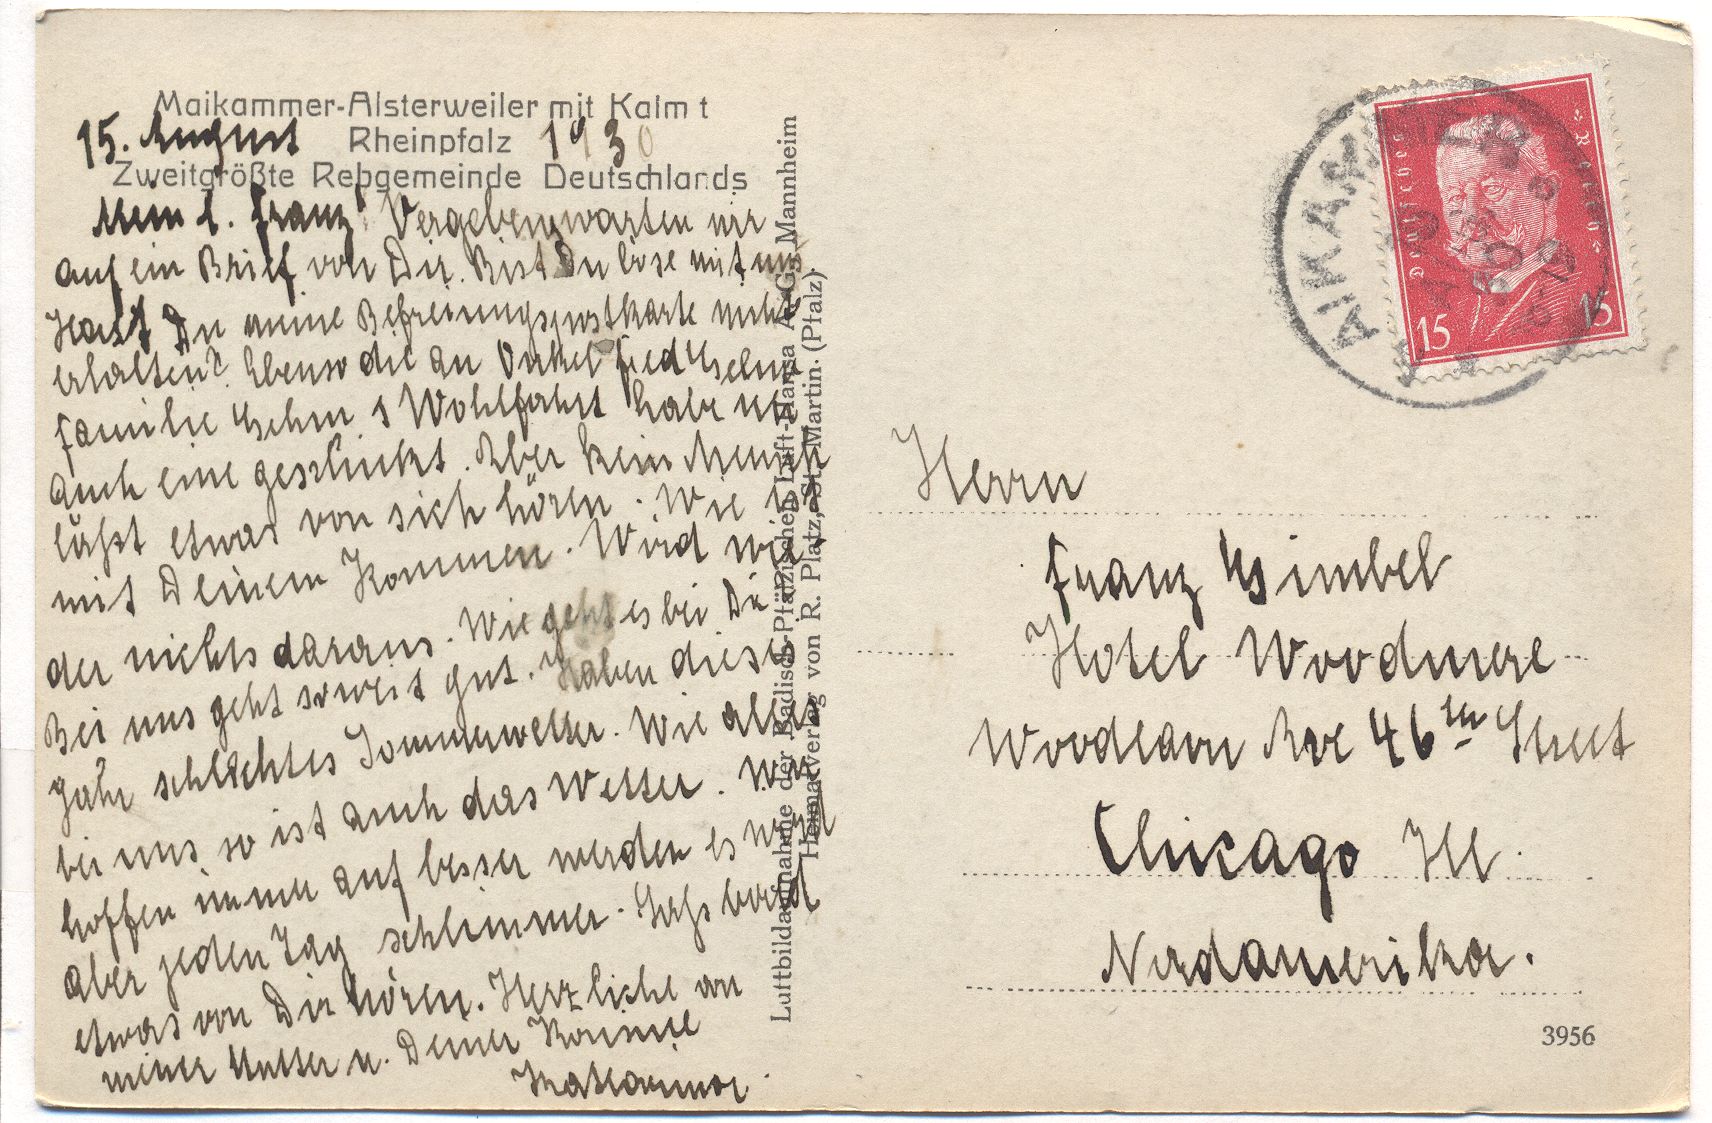 Maikammer-Alsterweiler mit Kalmt
15. August Rheinpfalz 1930
Zweitgrößte Rebgemeinde Deutschlands
Mein l. Franz! Vergebens warten wir
auf ein Brief von Dir. Bist Du böse mit uns.
Hast Du meine Befreiungspostkarte nicht
erhalten? Ebenso die an Onkel
Familie Gehm, Wohlfahrt habe ich
auch eine geschickt. Aber kein Mensch
läßt etwas von sich hören. Wie ist
mit Deinem Kommen. Wird wie-
der nichts daraus. Wie geht es bei Dir
Bei uns geht soweit gut. Haben dieses
Jahr schlechtes Sommerwetter. Wie alles
bei uns so ist auch das Wetter. Wir
hoffen immer auf besser werden es wird
aber jeden Tag schlimmer. Laß bald
etwas von Dir hören. Herzliche
meiner Mutter u. Deiner Kousine
Katharina.
Luftbildaufnahme der Badisch-Pfälzischen Luft-Hansa A.-G., Mannheim
Heimatverlag von R. Platz, St. Martin. (Pfalz)
Deutsches Reich
15 15
Herrn
Franz Gimbel
Hotel Woodmere
Woodlawn Ave 46th Street
Chicago Ill.
Nordamerika.
3956